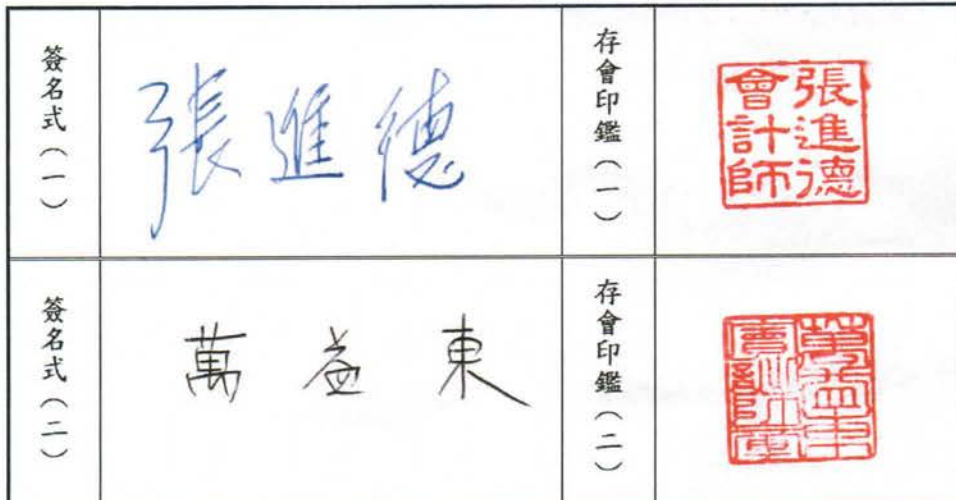 簽名式（一）
張進德
存會印鑑（一）
張進德
會計師
簽名式（二）
萬益東
存會印鑑（二）
萬益東
會計師章